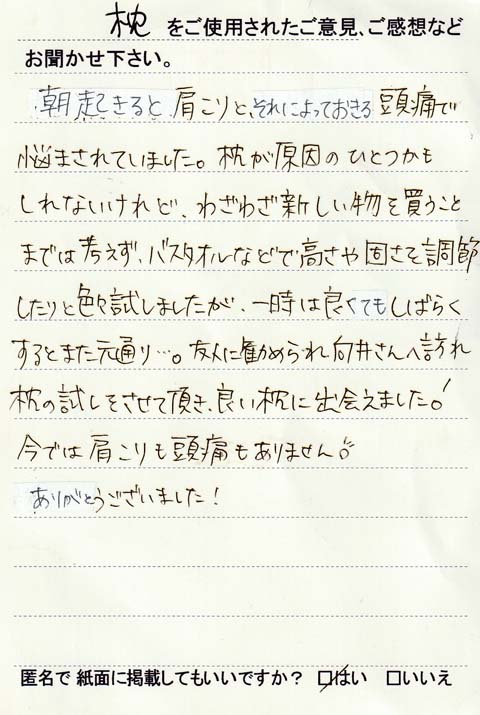 枕 をご使用されたご意見、ご感想など
お聞かせ下さい。
朝起きると肩こりと、それによっておきる頭痛で
悩まされていました。枕が原因のひとつかも
しれないけれど、わざわざ新しい物を買うこと
までは考えず、バスタオルなどで高さや固さを調節
したりと色々試しましたが、一時は良くてもしばらく
するとまた元通り…。友人に勧められ向井さんへ訪れ
枕の試しをさせて頂き、良い枕に出会えました!
今では肩こりも頭痛もありません♪
ありがとうございました!
匿名で 紙面に掲載してもいいですか? ☑はい □いいえ